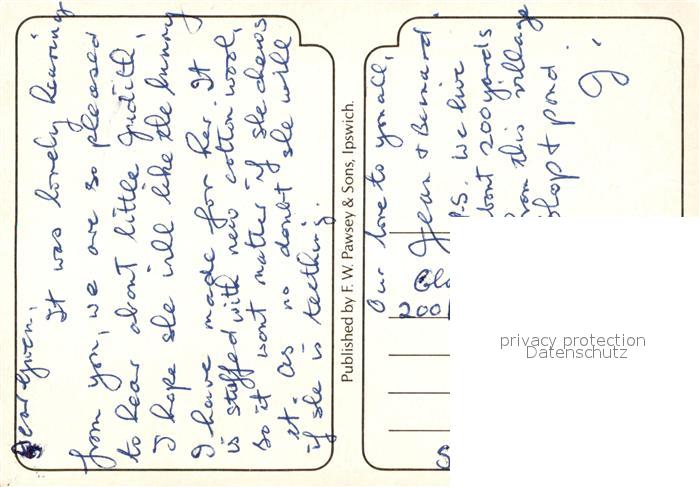 Dear Gwen,
It was lovely hearing
from you, we are so pleased
to hear about little Judith,
I hope she will like the bunny
I have made for her. It
is stuffed with new cotton wool,
so it wont matter if she chews
it. As no doubt she will
if she is teething.
Published by F. W. Pawsey & Sons, Ipswich.
Our love to you all,
Jean & Bernard.
P.S. We live
about 200 yards
from this village
shop & pond.
J.
200
privacy protection
Datenschutz